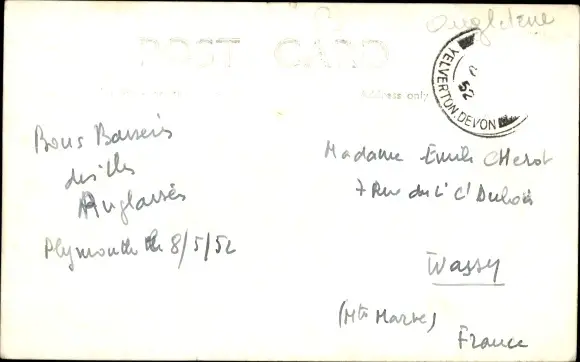 Angleterre
POST CARD
Address only
YELVERTON, DEVON
52
Bons Baisers
des Iles
Anglaises
Plymouth le 8/5/52
Madame Emile CHerot
7 Rue du Lt Cl Dubois
Wassy
(Hte Marne)
France